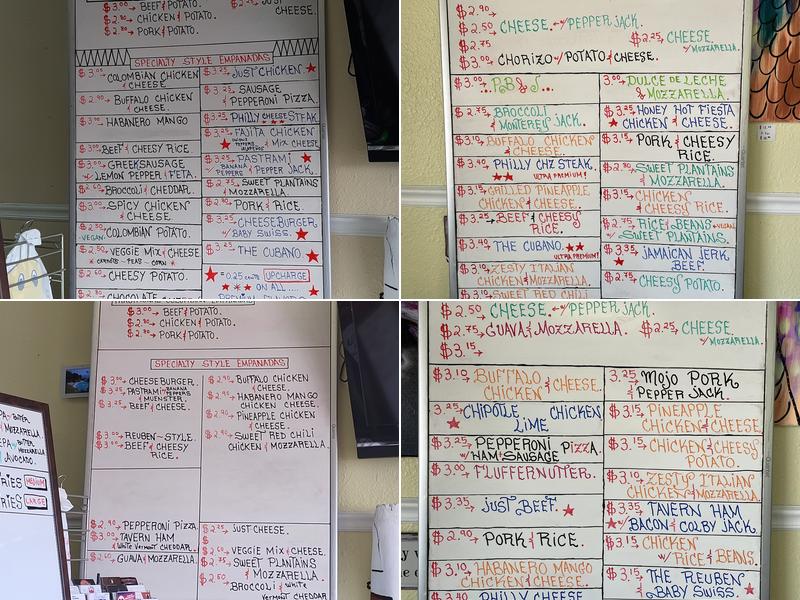 $3.00→ BEEF & POTATO.
$2.80→ CHICKEN & POTATO.
$2.80→ PORK & POTATO.
CHEESE.
SPECIALTY STYLE EMPANADAS
COLOMBIAN CHICKEN & CHEESE
$2.90→ BUFFALO CHICKEN & CHEESE.
HABANERO MANGO
BEEF & CHEESY RICE.
GREEK SAUSAGE
LEMON PEPPER & FETA.
BROCCOLI & CHEDDAR.
$3.00→ SPICY CHICKEN & CHEESE.
$2.50→ COLOMBIAN POTATO.
VEGAN
VEGGIE MIX & CHEESE
CARROTS - PEAS - CORN
CHEESY POTATO.
CHOCOLATE
$3.25→ JUST CHICKEN.
$3.25→ SAUSAGE & PEPPERONI PIZZA.
PHILLY CHEESE STEAK.
FAJITA CHICKEN
MIX CHEESE
$3.25→ PASTRAMI
BANANA PEPPERS & PEPPER JACK.
$2.75→ SWEET PLANTAINS & MOZZARELLA.
$2.80→ PORK & RICE.
$3.25→ CHEESEBURGER
W/ BABY SWISS.
$3.25→ THE CUBANO.
= 0.25 CENTS UPCHARGE
ON ALL....
$2.90→
$2.50→ CHEESE.←w/ PEPPER JACK.
$2.75
$2.25→ CHEESE.
w/ MOZZARELLA.
$3.00→ CHORIZO w/ POTATO & CHEESE.
$3.00→ P.B & J...
$2.75→ BROCCOLI
MONTEREY JACK.
$3.10→ BUFFALO CHICKEN
& CHEESE.
$3.40→ PHILLY CHZ STEAK.
ULTRA PREMIUM!
$3.15→ GRILLED PINEAPPLE
CHICKEN & CHEESE.
$3.25→ BEEF & CHEESY
RICE.
$3.40→ THE CUBANO.
ULTRA PREMIUM!
$3.10→ ZESTY ITALIAN
CHICKEN & MOZZARELLA.
$3.15→ SWEET RED CHILI
3.00→ DULCE DE LECHE
& MOZZARELLA.
$3.25→ HONEY HOT FIESTA
CHICKEN & CHEESE.
$3.15→ PORK & CHEESY
RICE.
$2.90→ SWEET PLANTAINS
& MOZZARELLA.
$3.15→ CHICKEN &
CHEESY RICE.
$2.75→ RICE & BEANS←VEGAN
w/ SWEET PLANTAINS.
$3.35→ JAMAICAN JERK
BEEF.
$2.75→ CHEESY POTATO.
$3.00→ BEEF & POTATO.
$2.80→ CHICKEN & POTATO.
$2.80→ PORK & POTATO.
SPECIALTY STYLE EMPANADAS
$3.00→ CHEESEBURGER.
PASTRAMI BANANA PEPPERS & MUENSTER.
BEEF & CHEESE.
$3.00→ REUBEN~STYLE.
$3.00→ BEEF & CHEESY
RICE.
$2.90→ BUFFALO CHICKEN
& CHEESE.
$2.90→ HABANERO MANGO
CHICKEN & CHEESE.
$2.90→ PINEAPPLE CHICKEN
& CHEESE.
$2.90→ SWEET RED CHILI
CHICKEN & MOZZARELLA.
$2.90→ PEPPERONI PIZZA.
$3.00→ TAVERN HAM
& WHITE VERMONT CHEDDAR.
$2.60→ GUAVA & MOZZARELLA.
$2.25→ JUST CHEESE.
$
$2.60→ VEGGIE MIX & CHEESE.
$2.75→ SWEET PLANTAINS
& MOZZARELLA.
$2.50→ BROCCOLI & WHITE
VERMONT CHEDDAR
MOZZARELLA.
AVOCADO.
FRIES MEDIUM
FRIES LARGE
$2.50→ CHEESE.←w/ PEPPER JACK.
$2.75→ GUAVA & MOZZARELLA.
$2.25→ CHEESE.
w/ MOZZARELLA.
$3.15→
$3.10→ BUFFALO
CHICKEN & CHEESE.
3.25→ CHIPOTLE CHICKEN
LIME
$3.25→ PEPPERONI PIZZA.
w/ HAM & SAUSAGE
$3.00→ FLUFFERNUTTER.
$3.35→ JUST BEEF.
$2.90→ PORK & RICE.
$3.10→ HABANERO MANGO
CHICKEN & CHEESE.
$3.40 PHILLY CHEESE
3.25→ MOJO PORK
& PEPPER JACK.
$3.15→ PINEAPPLE
CHICKEN & CHEESE.
$3.15→ CHICKEN & CHEESY
POTATO.
$3.10→ ZESTY ITALIAN
CHICKEN & MOZZARELLA.
$3.35→ TAVERN HAM
w/ BACON & COLBY JACK.
$3.15→ CHICKEN
w/ RICE & BEANS.
$3.15→ THE REUBEN
w/ BABY SWISS.